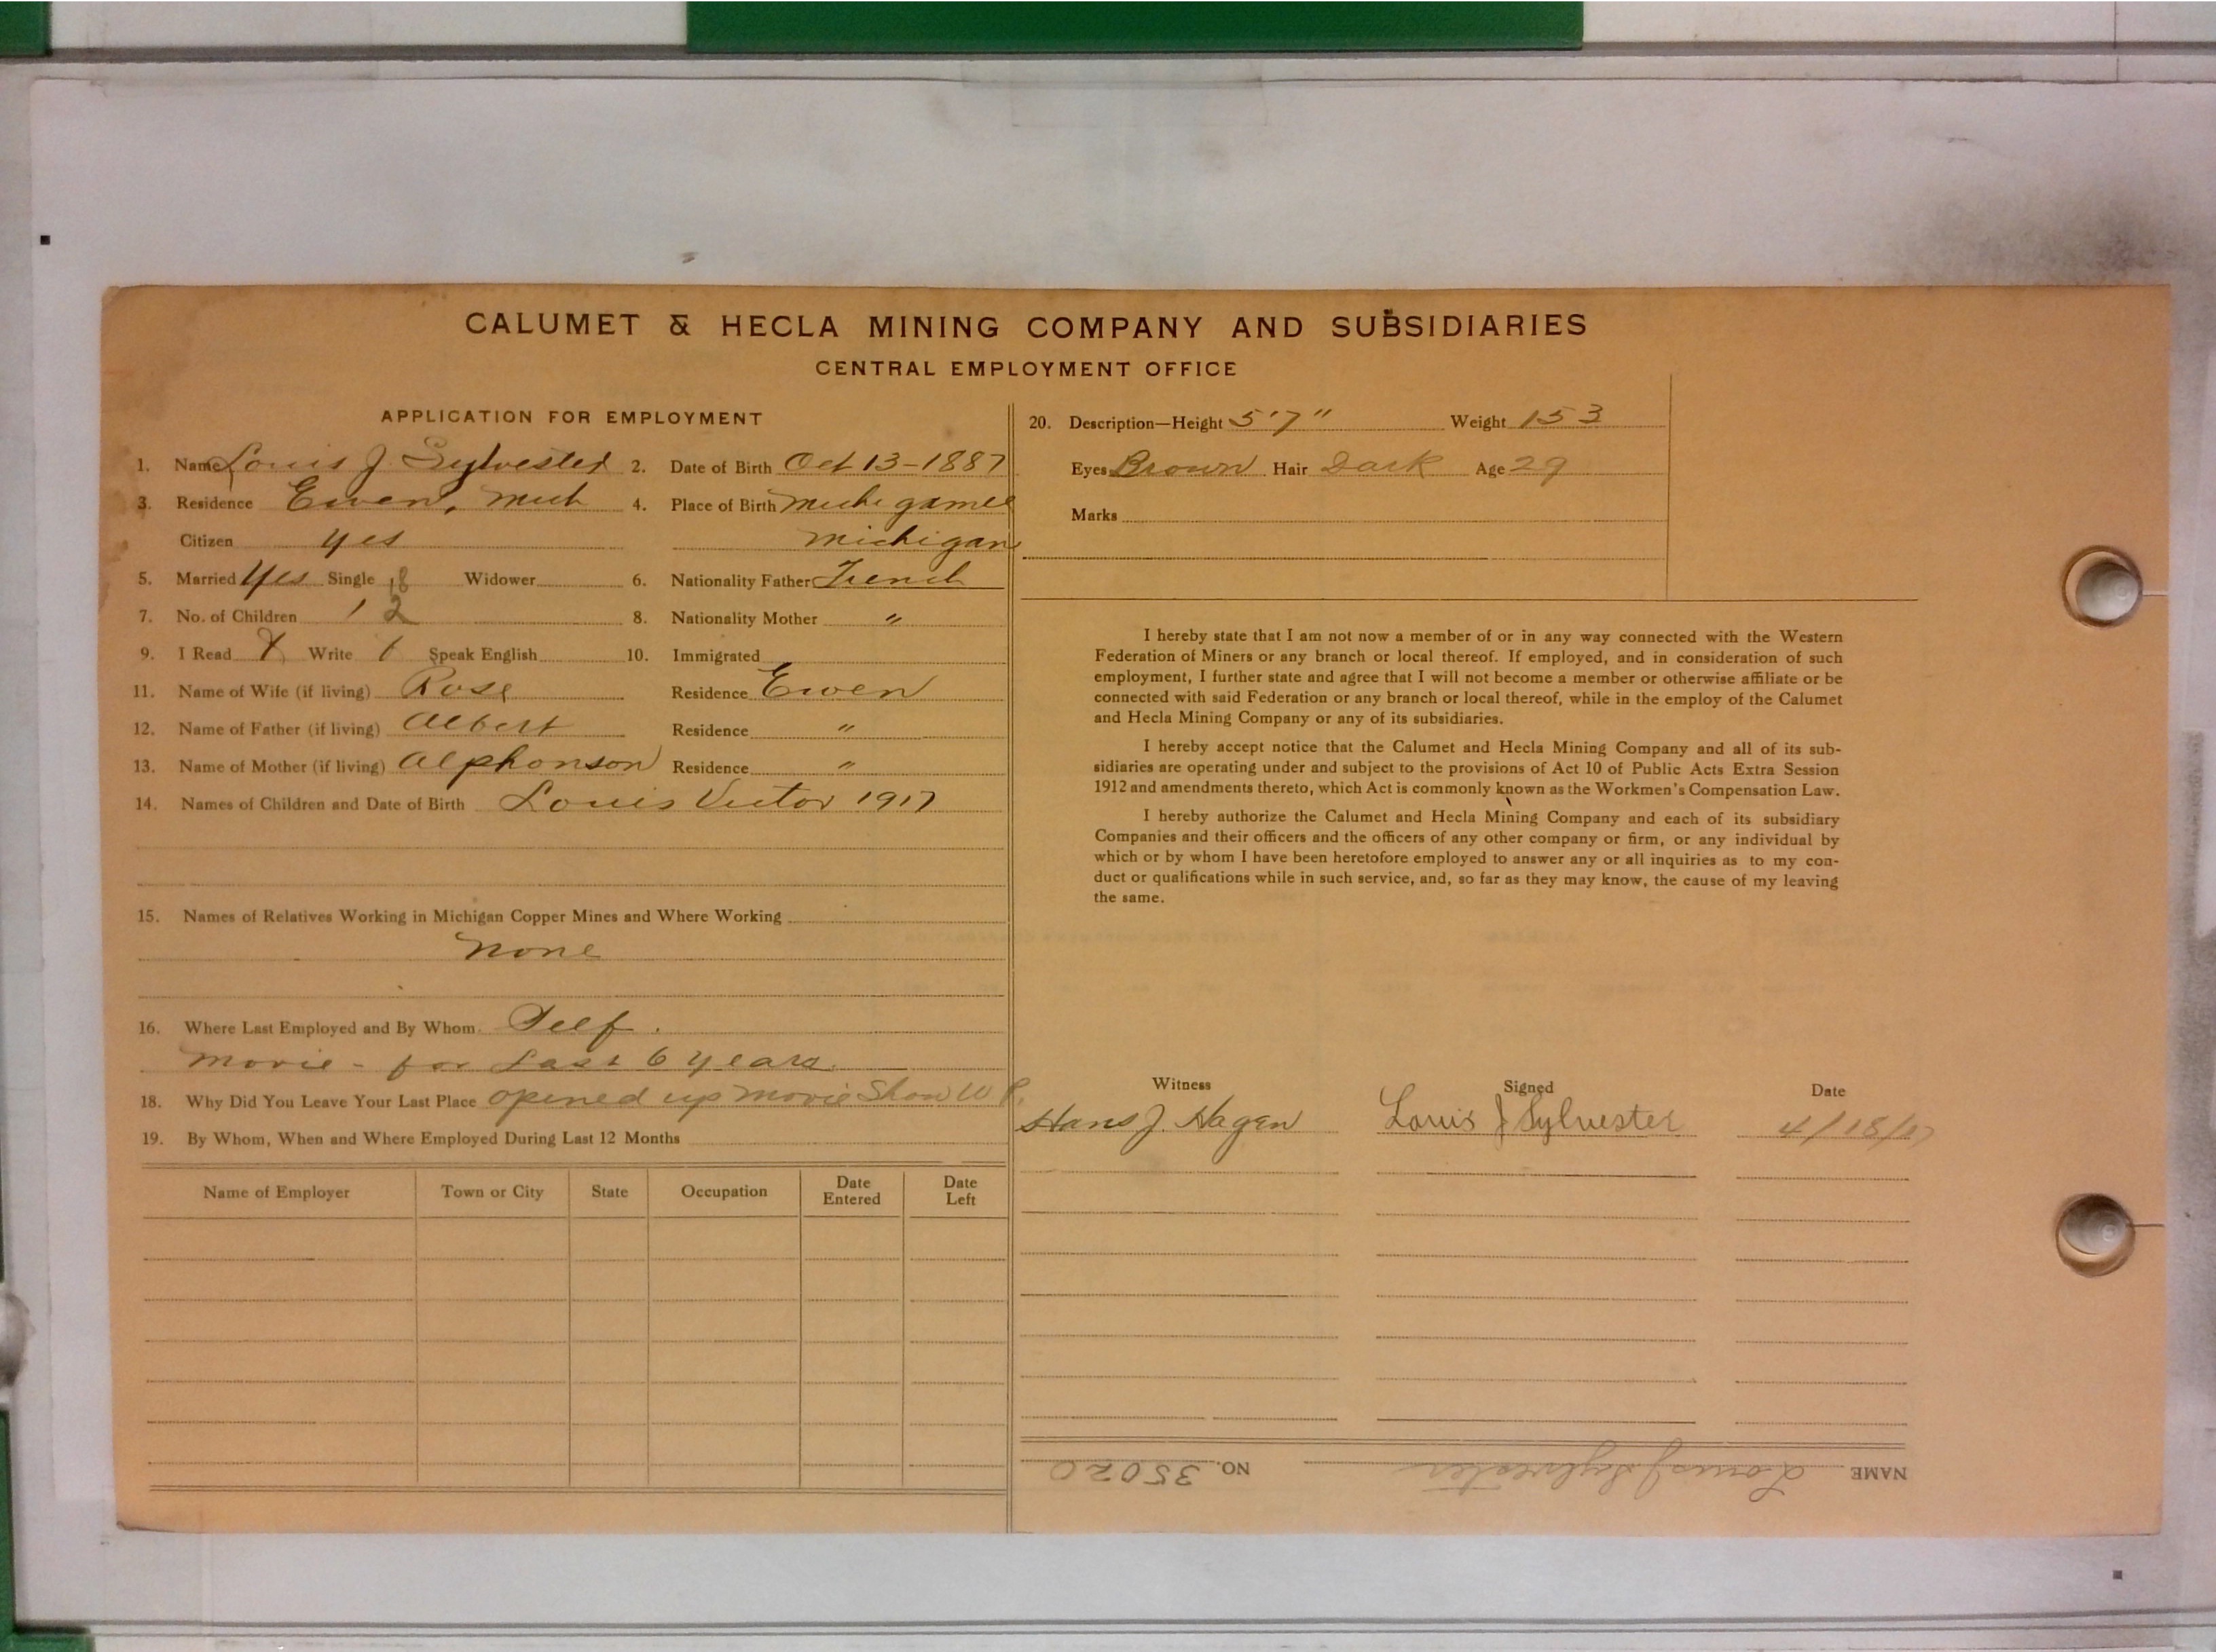 CALUMET & HECLA MINING COMPANY AND SUBSIDIARIES
CENTRAL EMPLOYMENT OFFICE
APPLICATION FOR EMPLOYMENT
1. Name Louis J Sylvester 2. Date of Birth Oct 13-1887
3. Residence Ewen, Mich 4. Place of Birth Michigamee
Citizen yes Michigan
5. Married Yes Single Widower 6. Nationality Father French
7. No. of Children 1 2 8. Nationality Mother "
9. I Read X Write Speak English 10. Immigrated
11. Name of Wife (if living) Rose Residence Ewen
12. Name of Father (if living) Albert Residence "
13. Name of Mother (if living) Alphonson Residence "
14. Names of Children and Date of Birth Louis Victor 1917
15. Names of Relatives Working in Michigan Copper Mines and Where Working
None
16. Where Last Employed and By Whom Self.
Movie - for Last 6 years
18. Why Did You Leave Your Last Place opened up movie Show
19. By Whom, When and Where Employed During Last 12 Months
Name of Employer Town or City State Occupation Date Entered Date Left
20. Description—Height 5'7" Weight 153
Eyes Brown Hair Dark Age 29
Marks
I hereby state that I am not now a member of or in any way connected with the Western
Federation of Miners or any branch or local thereof. If employed, and in consideration of such
employment, I further state and agree that I will not become a member or otherwise affiliate or be
connected with said Federation or any branch or local thereof, while in the employ of the Calumet
and Hecla Mining Company or any of its subsidiaries.
I hereby accept notice that the Calumet and Hecla Mining Company and all of its sub-
sidiaries are operating under and subject to the provisions of Act 10 of Public Acts Extra Session
1912 and amendments thereto, which Act is commonly known as the Workmen's Compensation Law.
I hereby authorize the Calumet and Hecla Mining Company and each of its subsidiary
Companies and their officers and the officers of any other company or firm, or any individual by
which or by whom I have been heretofore employed to answer any or all inquiries as to my con-
duct or qualifications while in such service, and, so far as they may know, the cause of my leaving
the same.
Witness Signed Date
Hans J. Hagen Louis J Sylvester 4/18/17
NAME Louis J Sylvester NO. 35020